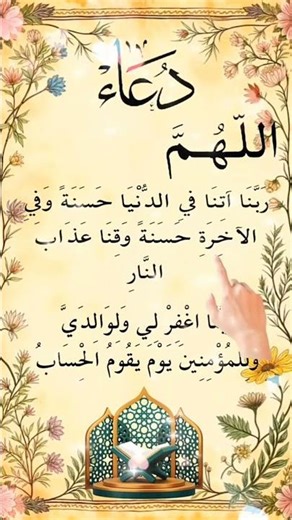 دُعَاء
اللّهُمَّ
رَبَّنَا آتنَا في الدُّنْيَا حَسَنَةً وَفِي
الآخَرَةِ حَسَنَةً وَقِنَا عذاب
النَّارِ
اغْفِرْ لي وَلِوَالِدَيَّ
وَللمُؤْمِنِينَ يَوْمَ يَقُومُ الْحِسَابُ